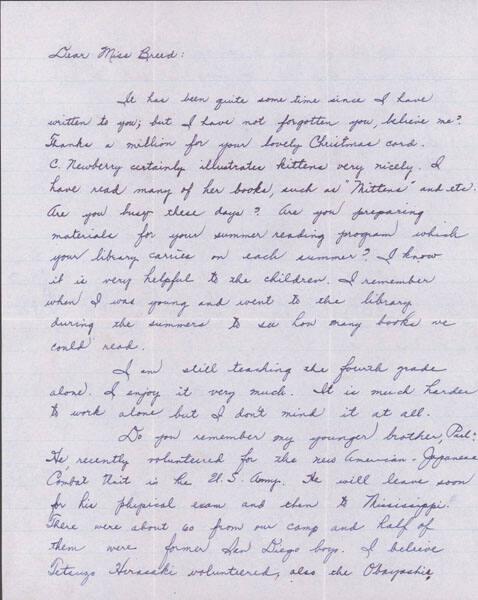 Dear Miss Breed:
It has been quite some time since I have
written to you; but I have not forgotten you, believe me?
Thanks a million for your lovely Christmas card.
C. Newberry certainly illustrates kittens very nicely. I
have read many of her books, such as "Mittens" and etc.
Are you busy these days? Are you preparing
materials for your summer reading program which
your library carries on each summer? I know
it is very helpful to the children. I remember
when I was young and went to the library
during the summers to see how many books we
could read.
I am still teaching the fourth grade
alone. I enjoy it very much. It is much harder
to work alone but I don't mind it at all.
Do you remember my younger brother, Paul?
He recently volunteered for the new American-Japanese
Combat Unit in the U.S. Army. He will leave soon
for his physical exam and then to Missisippi.
There were about 60 from our camp and half of
them were former San Diego boys. I beleive
Tetsuzo Hirasaki volunteered, also the Obayashis